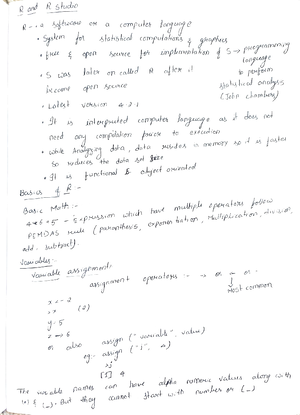 R and R studio
R - is a software or a computer language
• System for statistical computations & graphics
• free & open source for implementation of S → programming language
to perform
statistical analysis
(John Chambers)
• S was later on called R after it
become open source
• Latest version 4.2.1
• It is interpreted computer language as it does not
need any compilation prior to execution
• while analyzing data, data resides in memory so it is faster
So reduces the data set
• It is functional & object oriented
Basics of R -
Basic Math:-
expression which have multiple operators follow
PEMDAS rule (paranthesis, exponentiation, multiplication, division,
add, subtract).
Variables:-
Variable assignment:-
assignment operators :- → or = or
most common
x <- 2
>x (2)
y = 5
or also assign ("variable", value)
eg:- assign ("j", 4)
>j
[1] 4
The variable names can have alpha numeric values along with
(.) & (_). But they cannot start with number or (_)